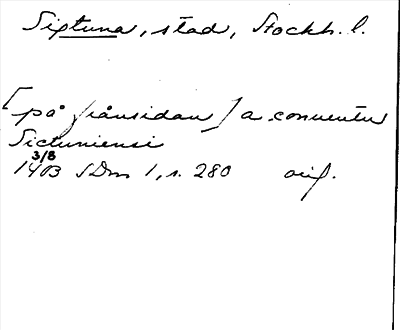 Sigtuna, stad, Stockh. l.
[på frånsidan] a conuentu
Sictuniensi
3/8
1403 SDns 1, s. 280 orig.